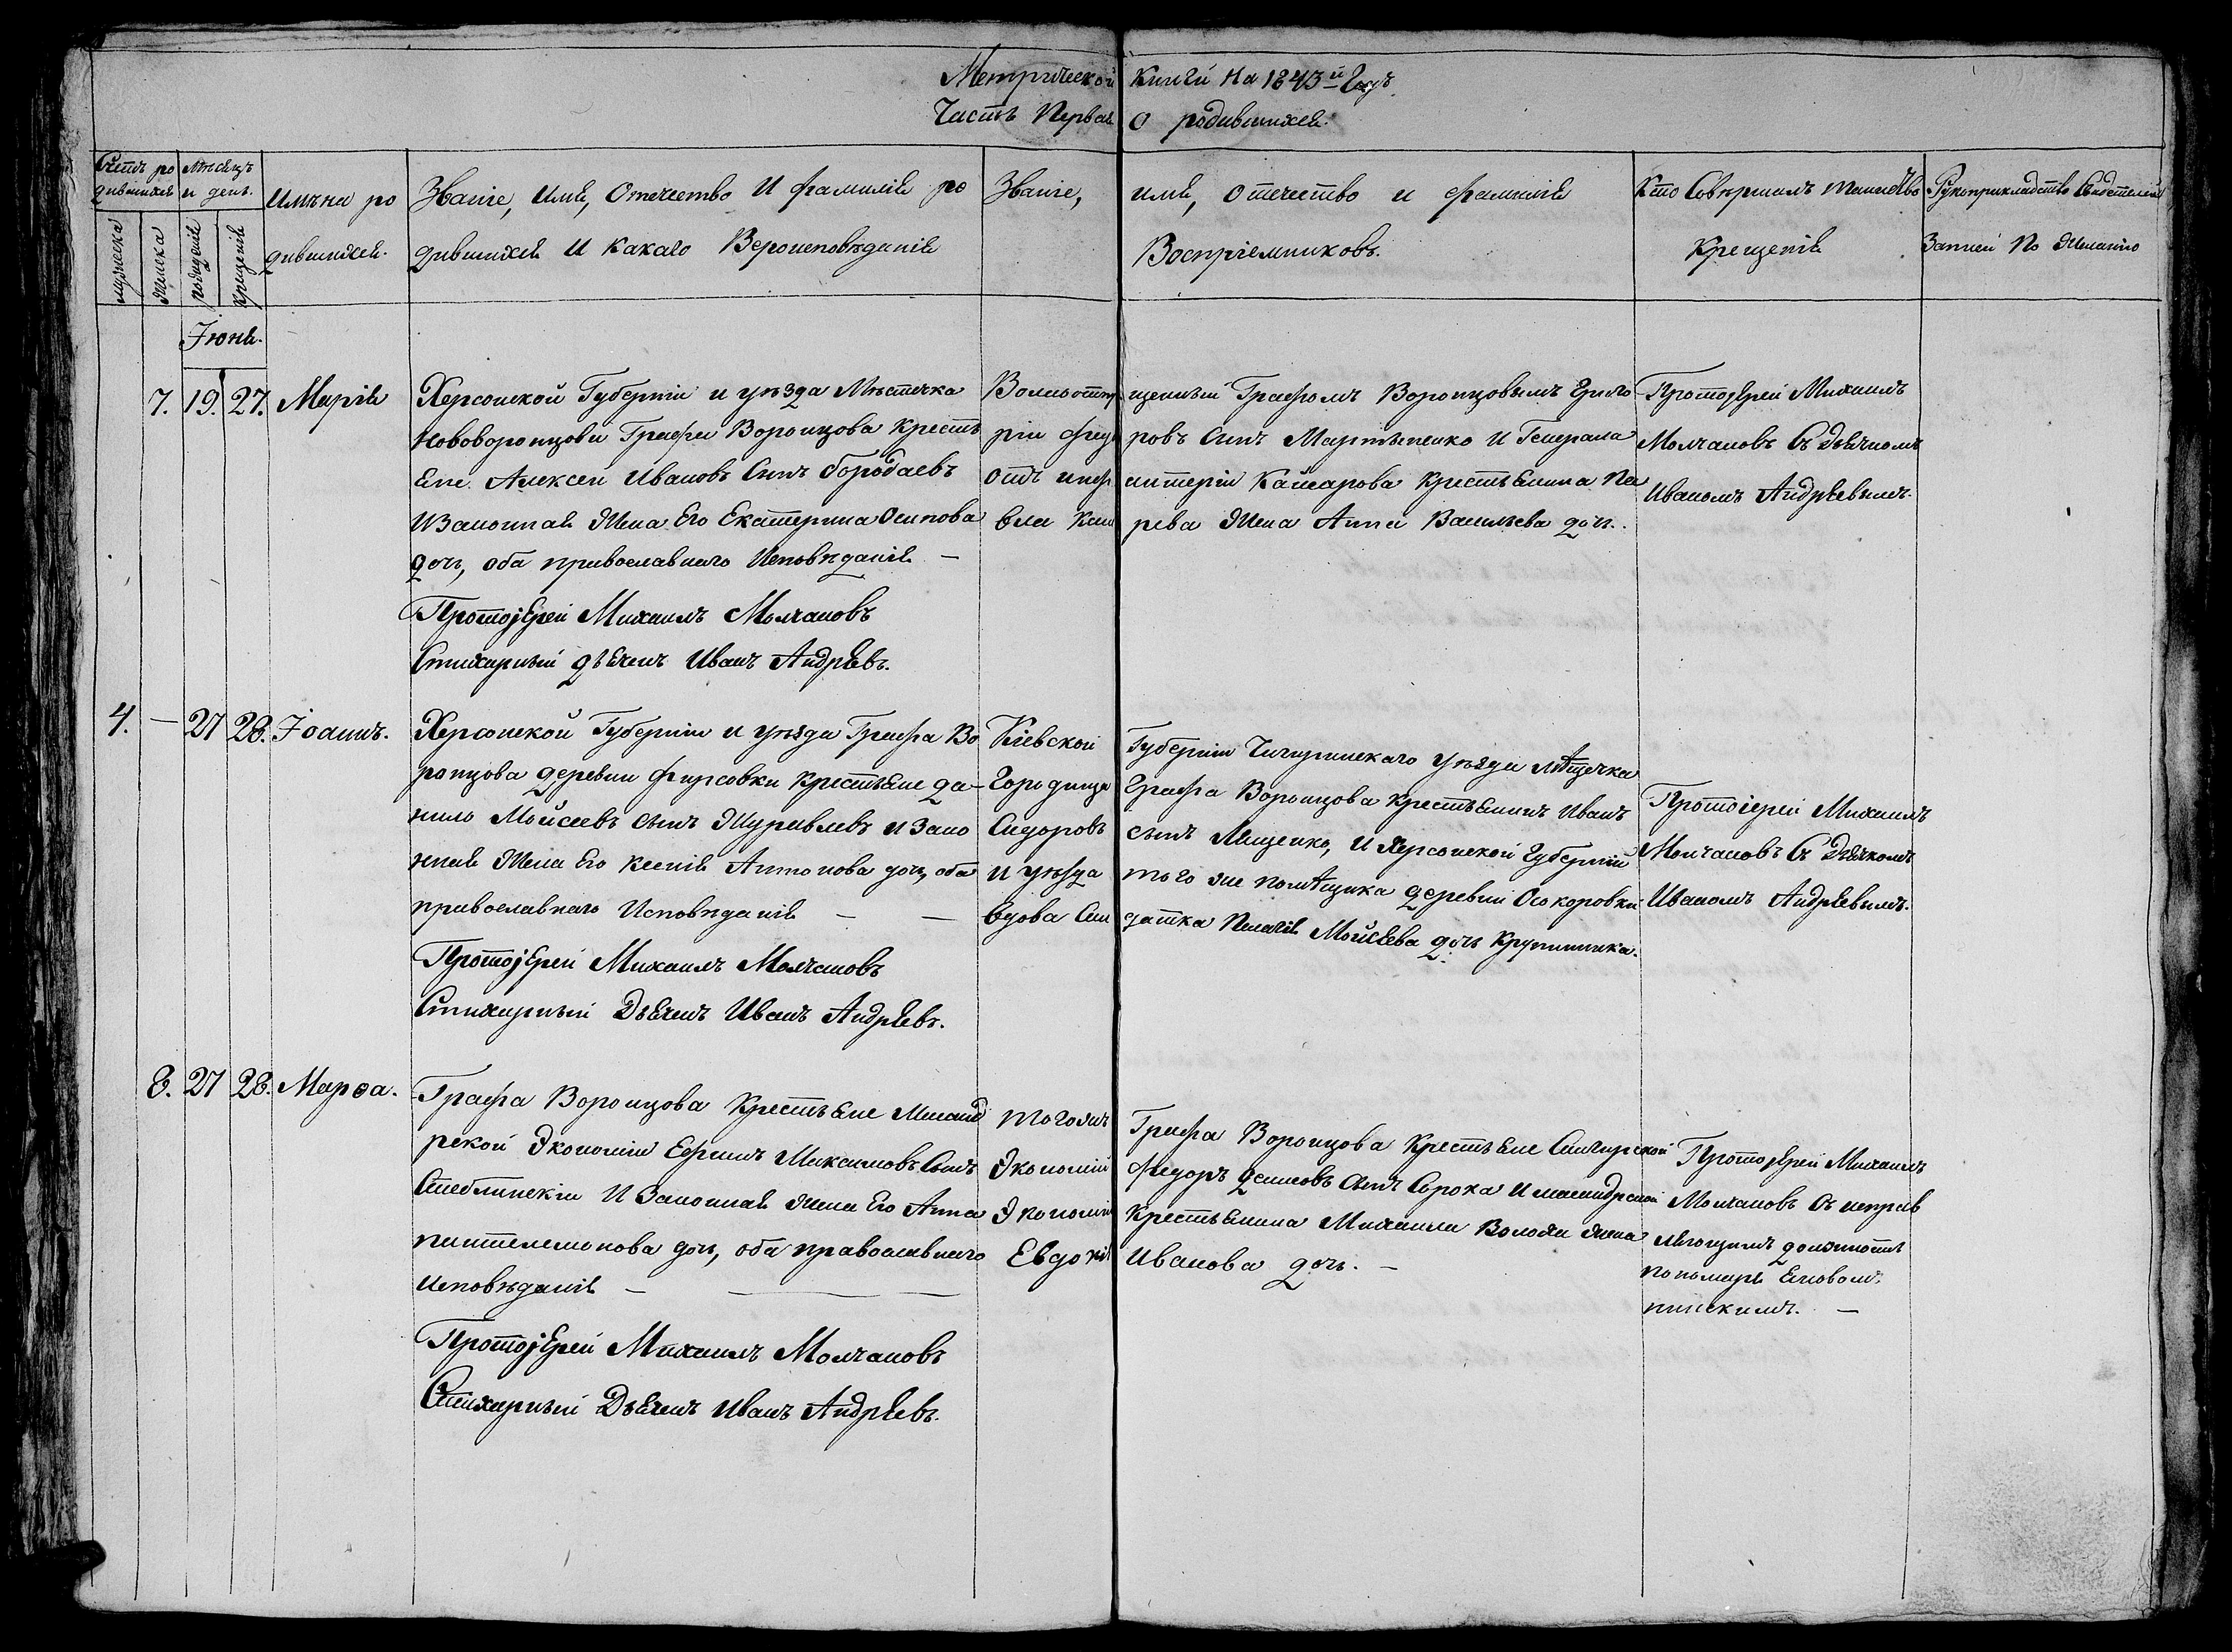 Метрической Книги на 1843й Годъ
Часть Первая О родившихся.
Счетъ ро
дившихся
Мѣсяцъ
и день.
мужеска
женска
рожденія
крещенія
Имѣна ро
дившихся.
Званіе, Имя, Отечество И фамилія ро
дившихся И какаго Вероисповѣданія
Званіе, имя, отечество и фамилія
Воспріемниковъ.
Кто Совѣршалъ таинство
Крещенія
Рукоприкладство Свидетелей
Записи По Желанію
Іюня.
7. 19. 27. Марія
Херсонской Губерніи и уѣзда Мѣстечка
Нововоронцовки Графа Воронцова Крестъ
яне Алексей Ивановъ Сынъ бородаевъ
И Законная Жена Его Екатерина Осипова
дочь, оба православнаго Исповѣданія —
ПротоіЕрей Михаилъ Молчановъ
Стихарный дьячекъ Иванъ Андрѣевъ.
Вольноотпущенный Графомъ Воронцовымъ Григо
рій федоровъ Сынъ Мартыненко И Генерала
отъ инфантеріи Кайсарова Крестьянина Па
вла жена Анна Васильева дочь.
ПротоіЕрей Михаилъ
Молчановъ Съ дьячкомъ
Иваномъ Андрѣевымъ.
4. — 27 28. Іоаннъ.
Херсонской Губерніи и уѣзда Графа Во
ронцова деревни фирсовки Крестьяне Да-
нило Мойсеевъ сынъ Журавлевъ и Зако
нная Жена Его Ксенія Антонова дочь, оба
православнаго Исповѣданія — —
ПротоіЕрей Михаилъ Молчановъ
Стихарный Дьячекъ Иванъ Андрѣевъ.
Кіевской Губерніи Чигиринскаго уѣзда мѣстечка
Городища Графа Воронцова крестьянинъ Иванъ
Сидоровъ сынъ Лященко, И Херсонской Губерніи
и уѣзда того же помѣщика деревни Осокоровки
вдова Солдатка Пелагія Мойсѣева дочь
ПротоіЕрей Михаилъ
Молчановъ Съ Дьячкомъ
Иваномъ Андрѣевымъ.
8. 27 28. Марѳа.
Графа Воронцова Крестьяне
Экономіи Ефимъ Максимовъ Сынъ
Стеблинскій И Законная жена Его Анна
пантелемонова дочь, оба православнаго
исповѣданія — — —
ПротоіЕрей Михаилъ Молчановъ
Стихарный Дьячекъ Иванъ Андрѣевъ.
Тогожъ Графа Воронцова Крестьяне
Экономіи Федоръ Сынъ Сорока И
Экономіи Крестьянина Михаила жена
Евдокія Иванова дочь. —
ПротоіЕрей Михаилъ
Молчановъ Съ исправ
ляющимъ должность
пономаря